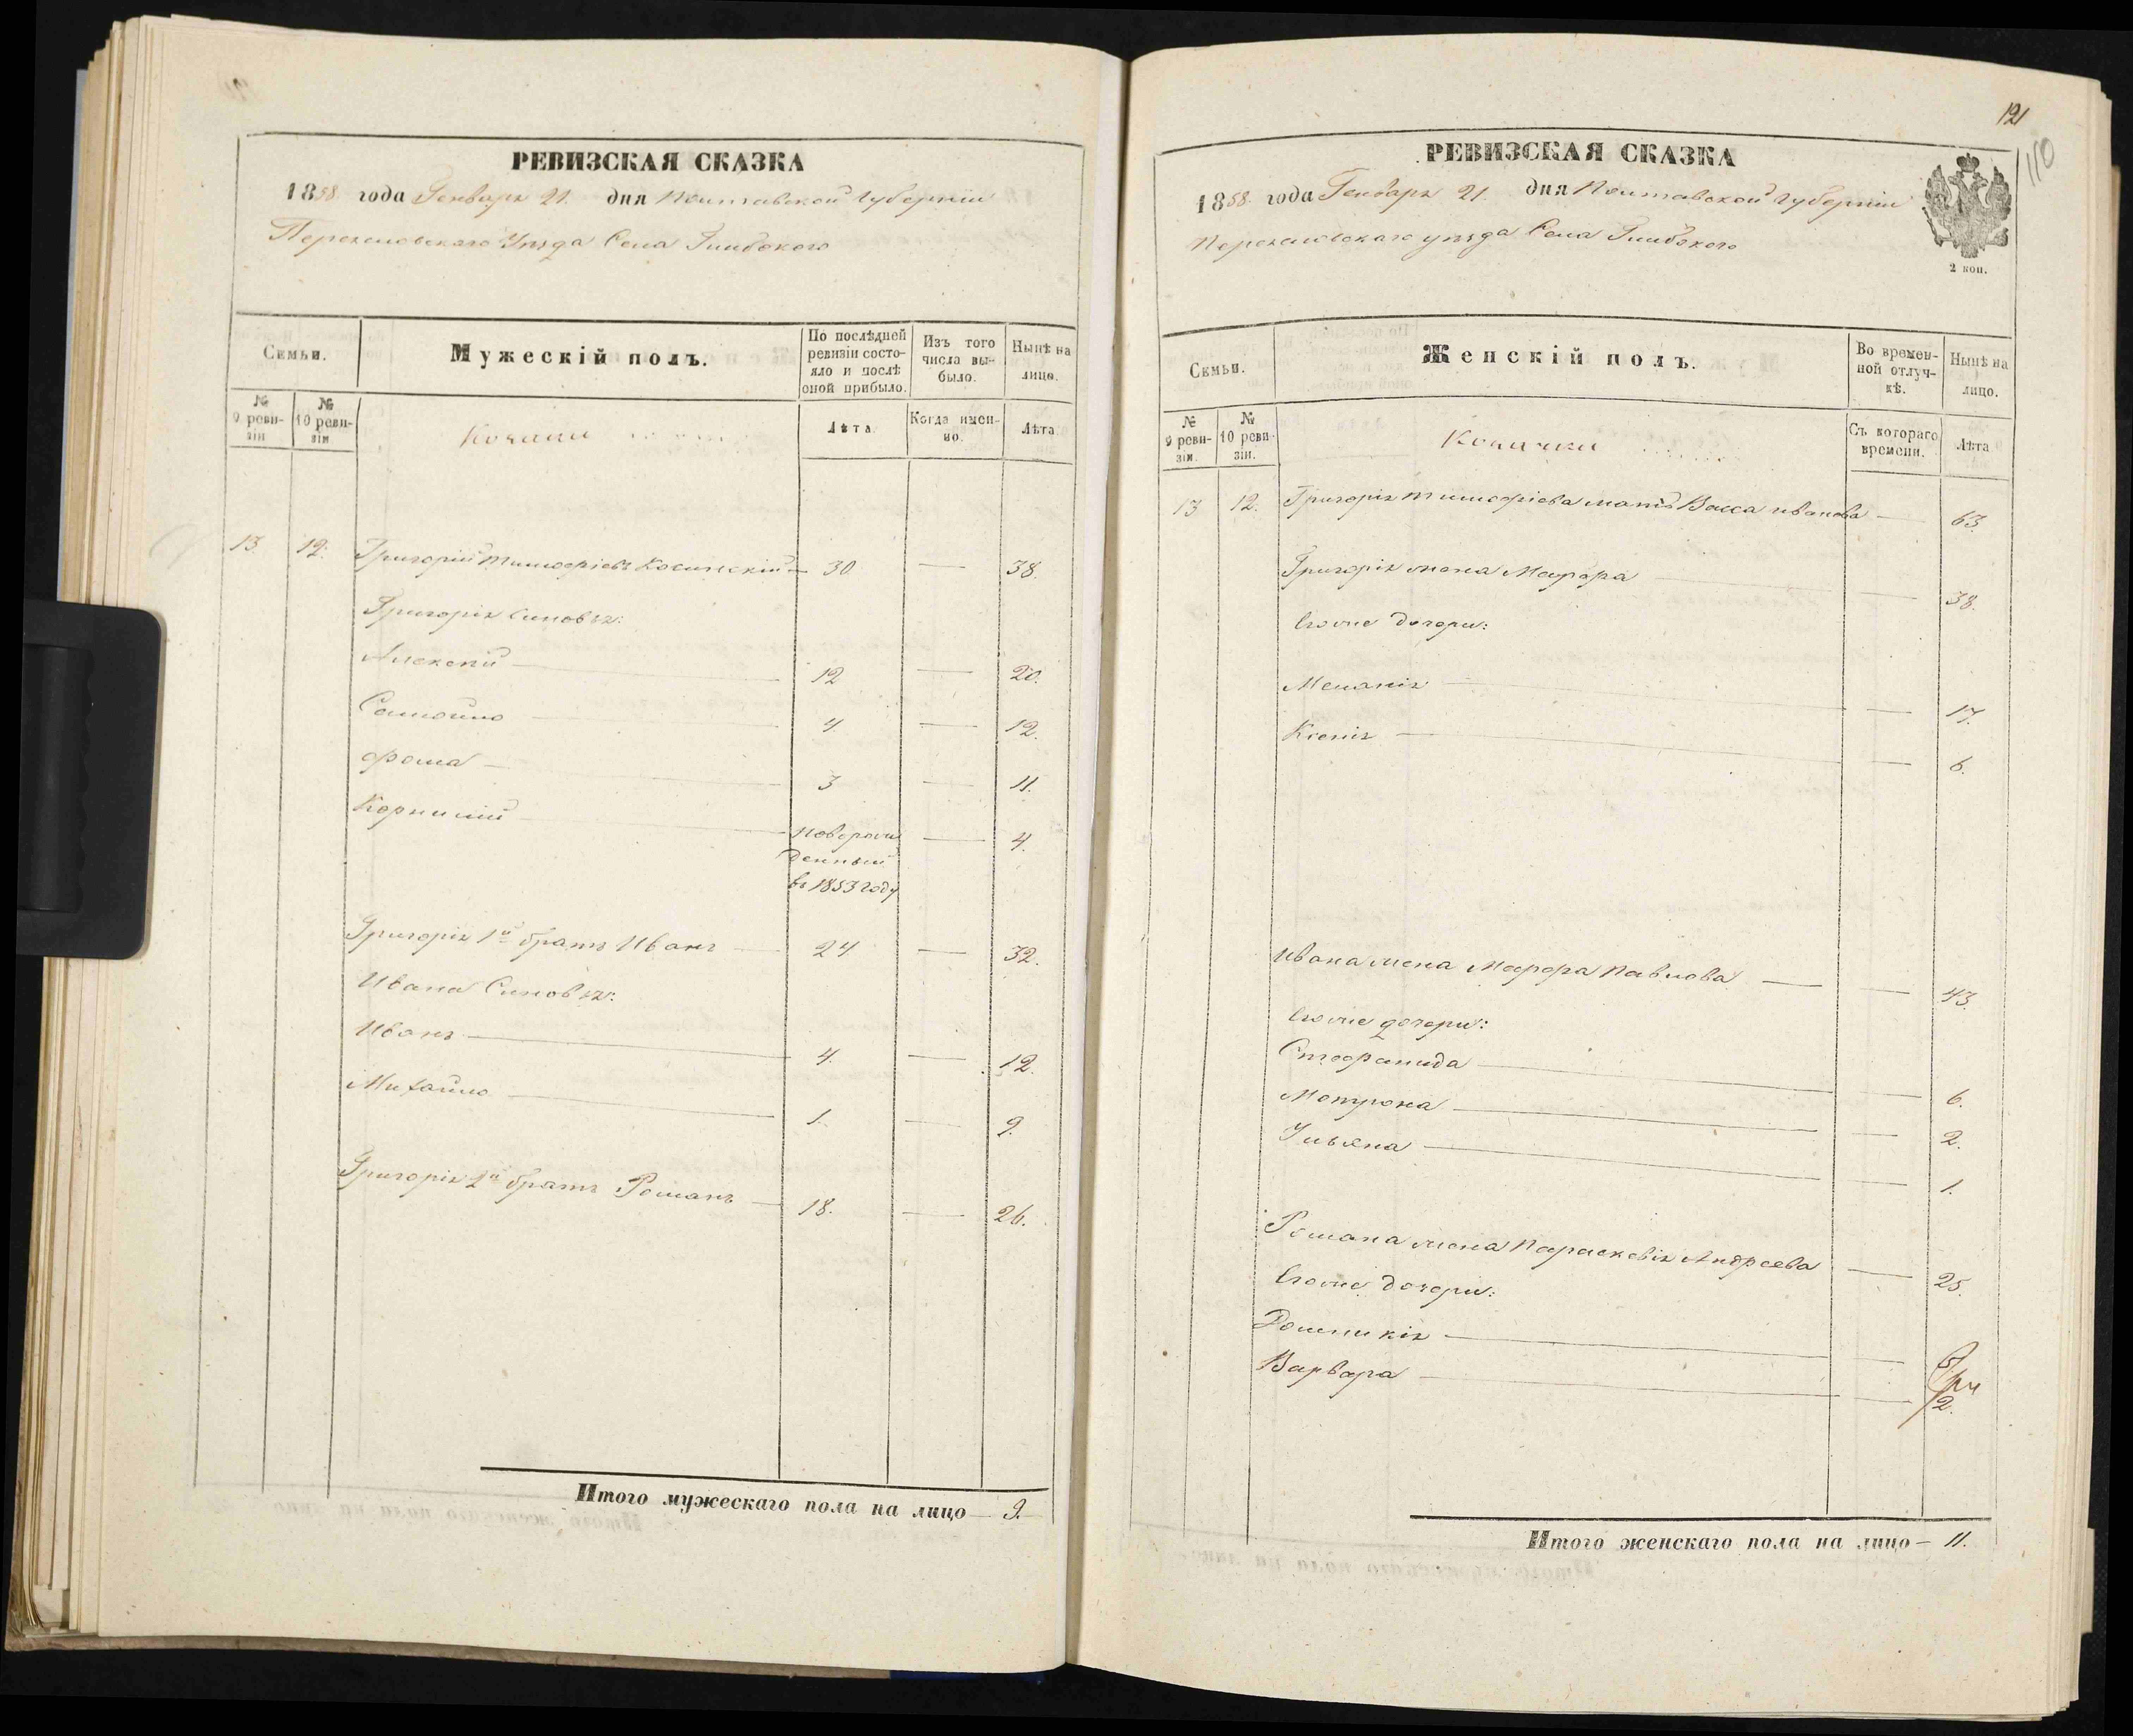 РЕВИЗСКАЯ СКАЗКА
1858 года Генваря 21 дня Полтавской Губерніи
Переяславскаго Уѣзда Села Глибокого
Семьи.
Мужескій полъ.
По послѣдней ревизіи состояло и послѣ оной прибыло.
Изъ того числа выбыло.
Нынѣ на лицо.
№ 9 ревизіи
№ 10 ревизіи
Козаки
Лѣта
Когда именно.
Лѣта
13. 12. Григорій Тимофѣевъ 30 — 38.
Григорія Синовья:
Алексѣй 12 — 20.
Самойло 4 — 12.
Фома 3 — 11.
Корнилій новорожденный въ 1853 году — 4.
Григорія 1й братъ Иванъ 24 — 32.
Ивана Синовья:
Иванъ 4. — 12.
Михайло 1. — 9.
Григорія 2й братъ Романъ 18. — 26.
Итого мужескаго пола на лицо — 9.
121
110
РЕВИЗСКАЯ СКАЗКА
1858 года Генваря 21. дня Полтавской Губерніи
Переяславскаго уѣзда Села Глибокого
2 коп.
Семьи.
Женскій полъ.
Во временной отлучкѣ.
Нынѣ на лицо.
№ 9 ревизіи.
№ 10 ревизіи.
Козачки
Съ котораго времени.
Лѣта
13 12. Григорія Тимофіева мать Васса иванова — 63.
Григорія жена Марфа — 38.
Егоже дочери:
Меланія — 17.
Ксенія — 6.
Ивана жена Марфа Павлова — 43.
Егоже дочери:
Стефанида — 6.
Мотрона — 2.
Ульяна — 1.
Романа жена Параскевія Андреева — 25.
Егоже дочери:
Домникія —
Варвара — 2.
Итого женскаго пола на лицо — 11.